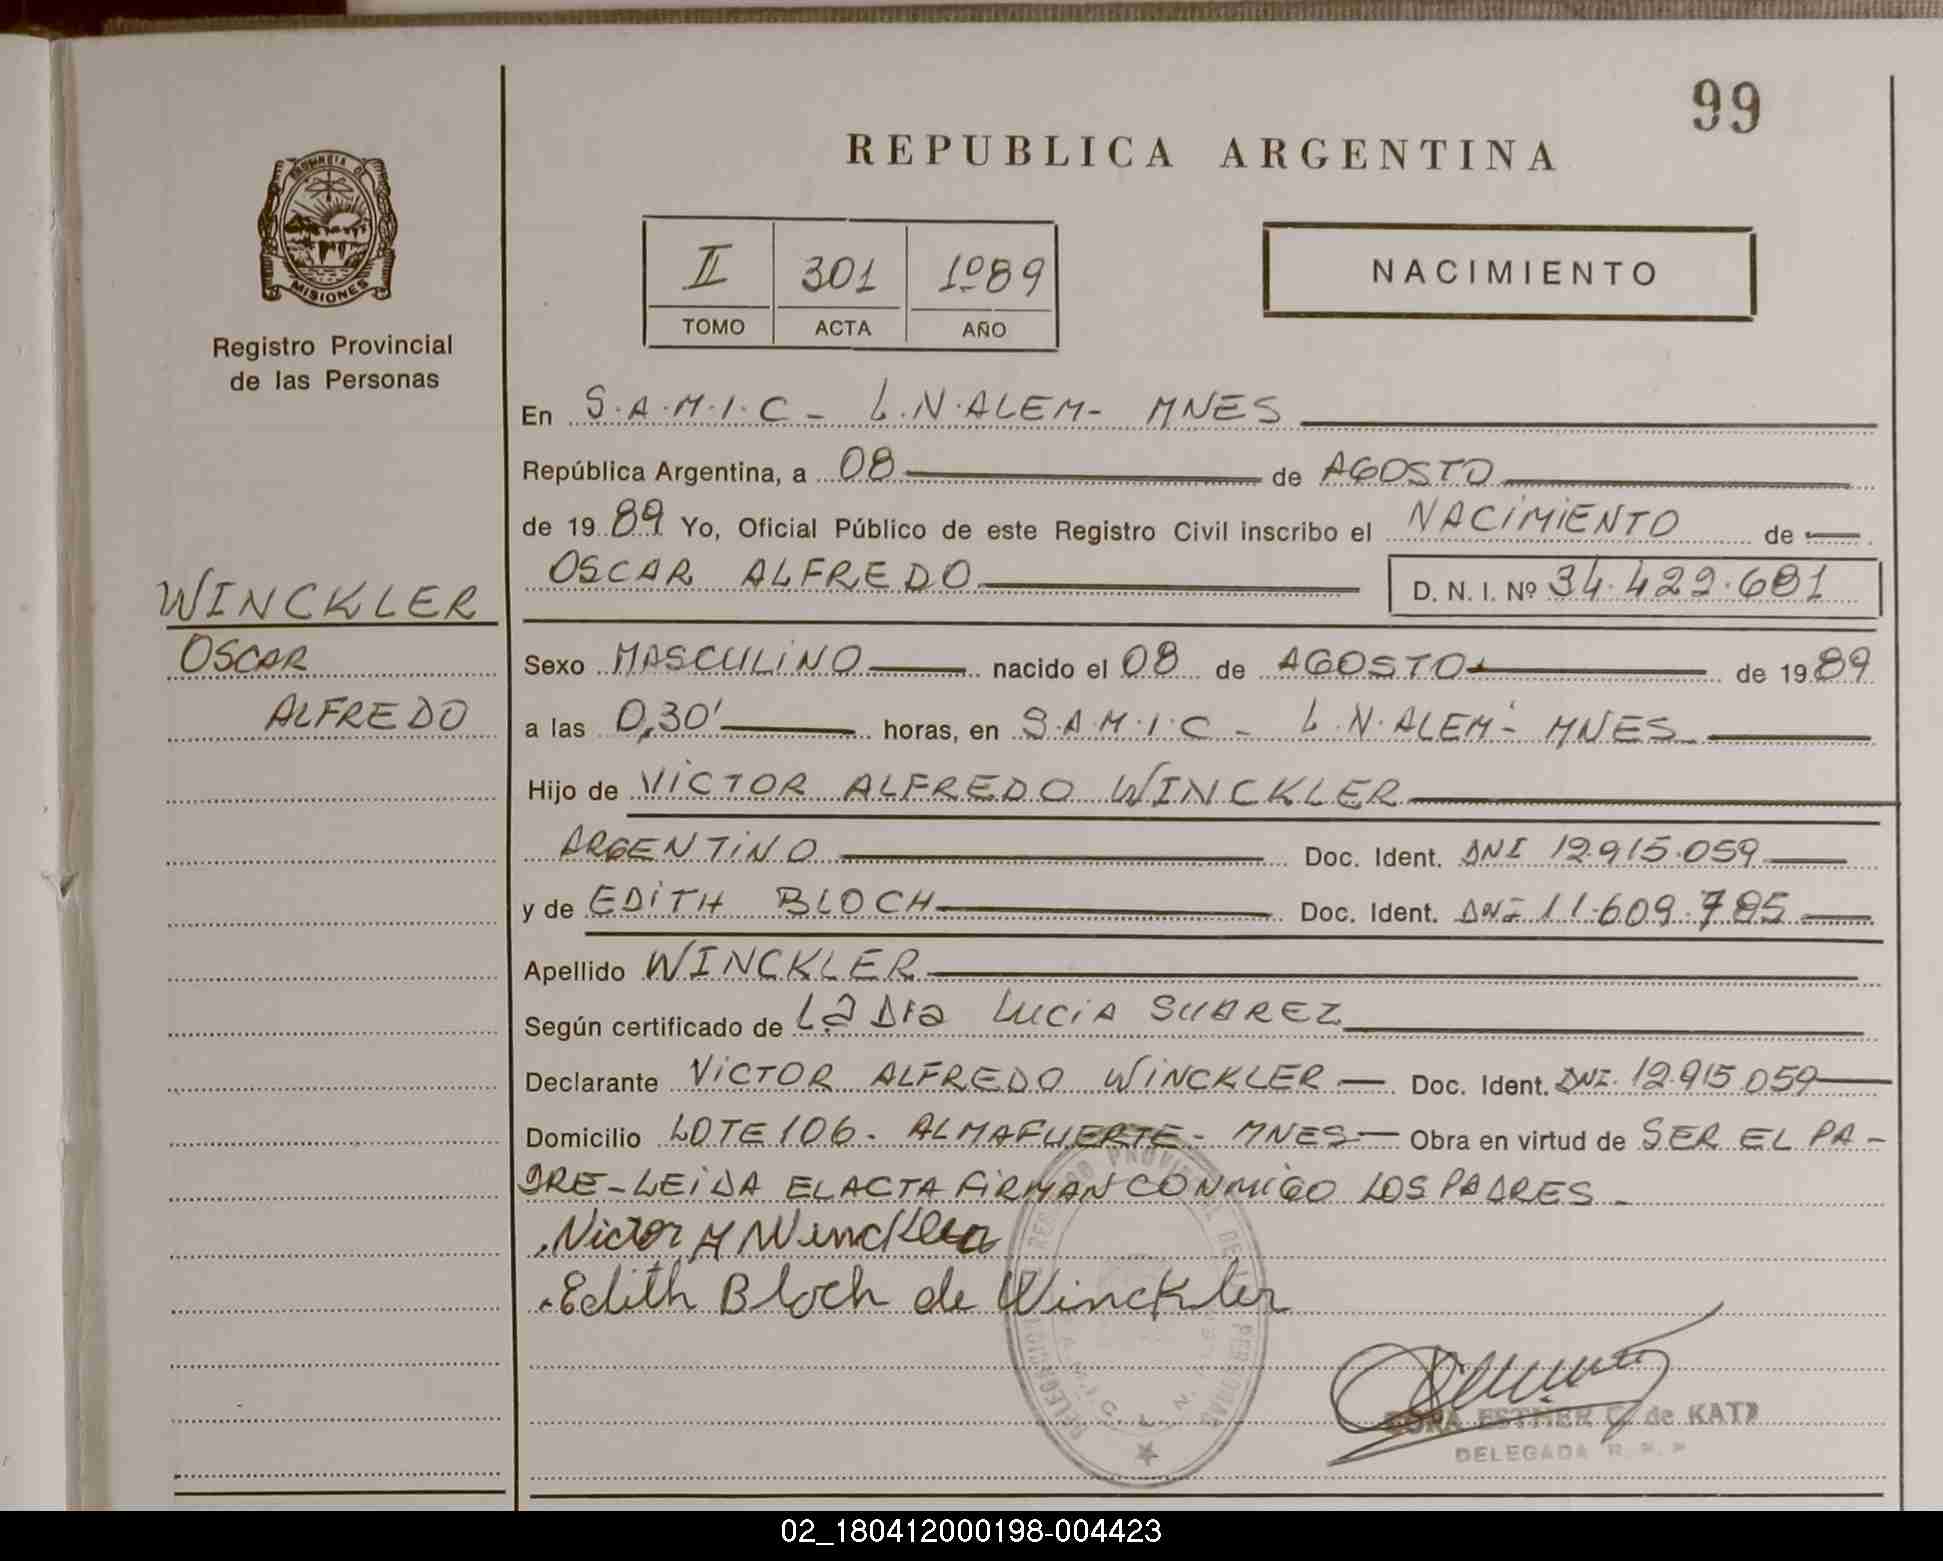 99
REPUBLICA ARGENTINA
PROVINCIA DE
MISIONES
Registro Provincial
de las Personas
II 301 1989
TOMO ACTA AÑO
NACIMIENTO
En S.A.M.I.C - L.N.ALEM- MNES
República Argentina, a 08 de AGOSTO
de 1989 Yo, Oficial Público de este Registro Civil inscribo el NACIMIENTO de
OSCAR ALFREDO D. N. I. Nº 34.422.681
WINCKLER
OSCAR
ALFREDO
Sexo MASCULINO nacido el 08 de AGOSTO de 1989
a las 0,30' horas, en S.A.M.I.C - L.N.ALEM- MNES
Hijo de VICTOR ALFREDO WINCKLER
ARGENTINO Doc. Ident. DNI 12.915.059
y de EDITH BLOCH Doc. Ident. DNI 11.609.785
Apellido WINCKLER
Según certificado de La DRa LUCIA SUAREZ
Declarante VICTOR ALFREDO WINCKLER Doc. Ident. DNI. 12.915.059
Domicilio LOTE 106- ALMAFUERTE- MNES- Obra en virtud de SER EL PA-
DRE-LEIDA EL ACTA FIRMAN CONMIGO LOS PADRES-
Victor A Winckler
Edith Bloch de Winckler
ESTHER C. de KATZ
DELEGADA R. P. P
02_180412000198-004423